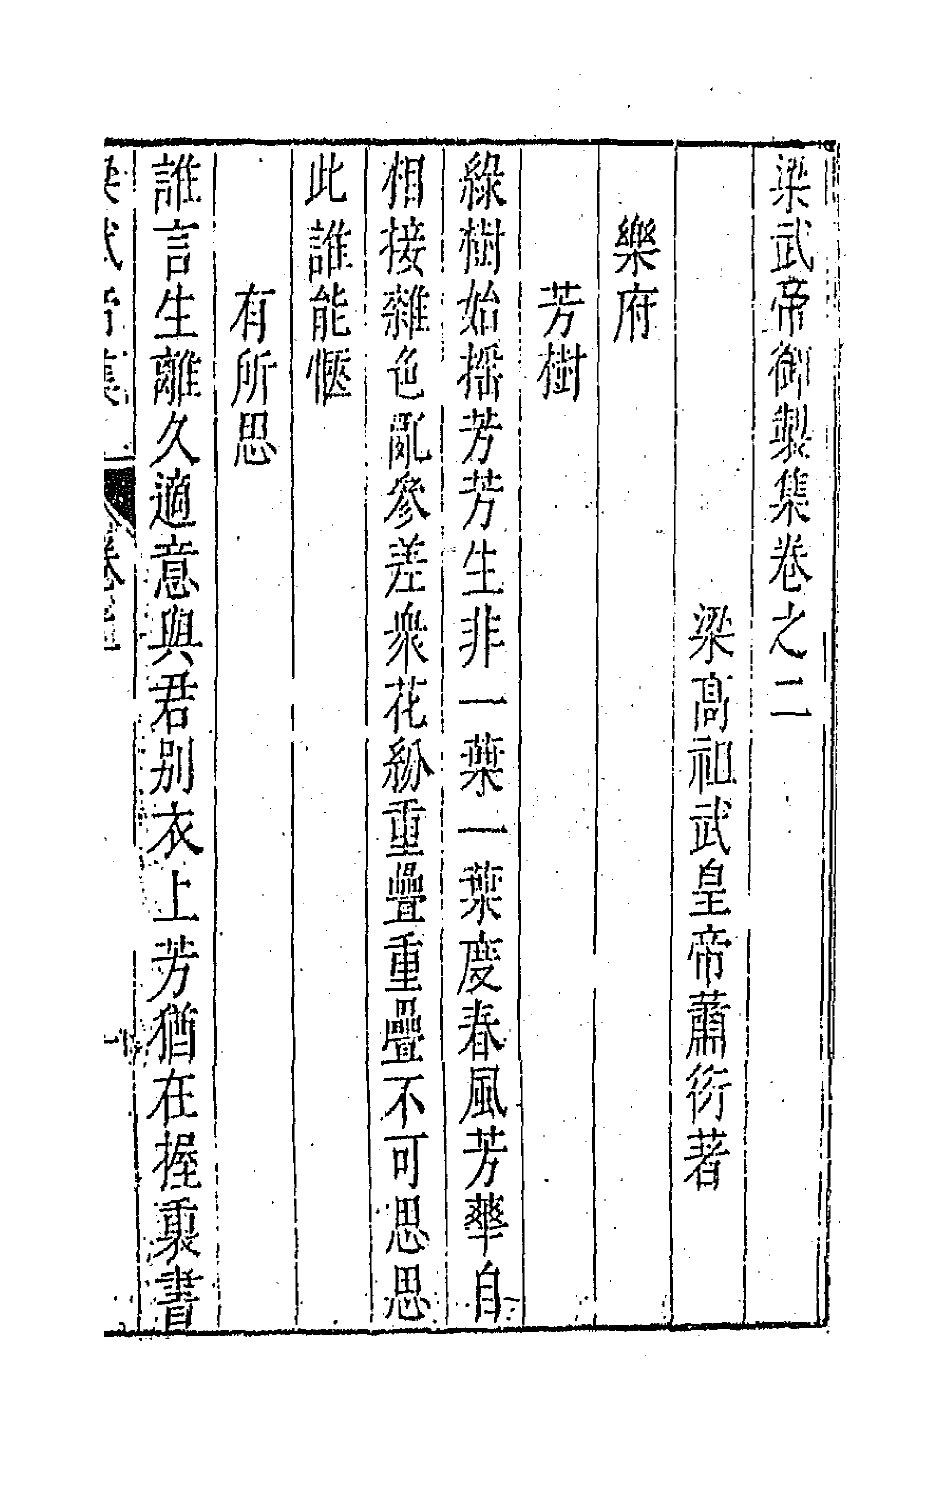 梁武帝御製集卷之二
梁高祖武皇帝蕭衍著
樂府
芳樹
綠樹始搖芳芳生非一葉一葉度春風芳華自
相接雜色亂參差衆花紛重疊重疊不可思思
此誰能愜
有所思
誰言生離久適意與君别衣上芳猶在握裏書